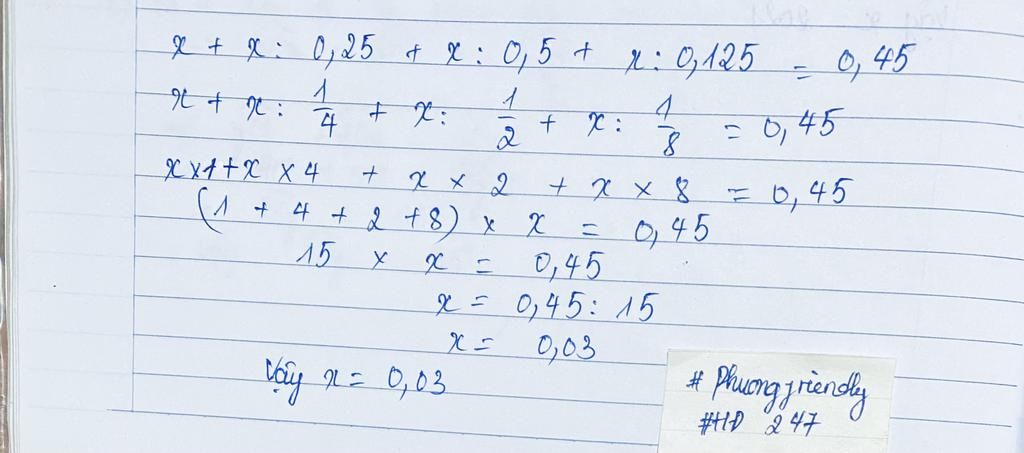 x + x : 0,25 + x : 0,5 + x : 0,125 = 0,45
x + x : 1/4 + x : 1/2 + x : 1/8 = 0,45
x x 1 + x x 4 + x x 2 + x x 8 = 0,45
(1 + 4 + 2 + 8) x x = 0,45
15 x x = 0,45
x = 0,45 : 15
x = 0,03
Vậy x = 0,03
# Phuongfriendly
#HD 247